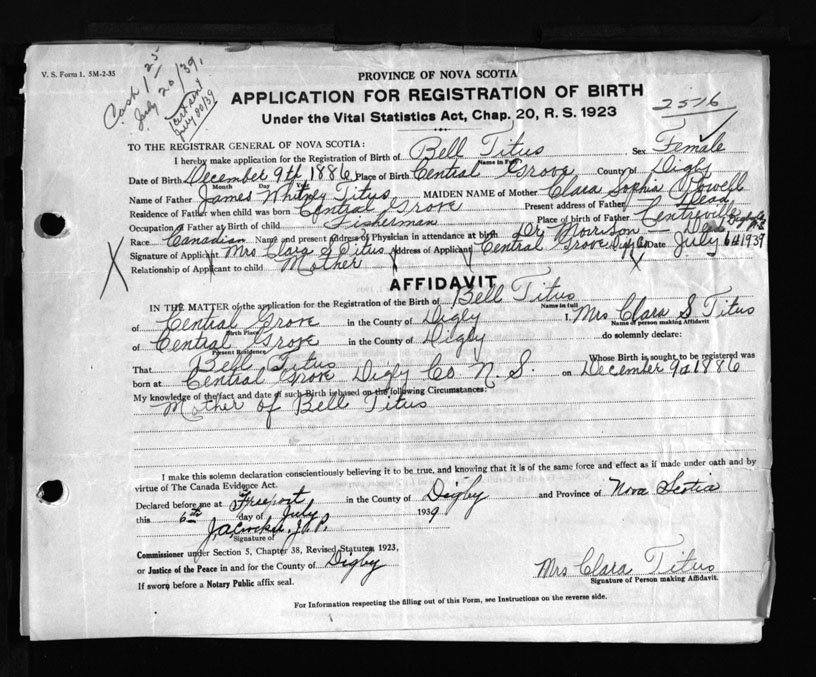 V. S. Form 1. 5M-2-35
Cash 1 25
July 20/39.
July 20/39
PROVINCE OF NOVA SCOTIA
APPLICATION FOR REGISTRATION OF BIRTH
Under the Vital Statistics Act, Chap. 20, R. S. 1923
2516
TO THE REGISTRAR GENERAL OF NOVA SCOTIA:
I hereby make application for the Registration of Birth of Bell Titus Sex Female
Name in Full
Date of Birth December 9th 1886 Place of Birth Central Grove County of Digby
Month Day Year
Name of Father James Whitney Titus MAIDEN NAME of Mother Clara Sophia Powell
Residence of Father when child was born Central Grove Present address of Father Dead
Occupation of Father at Birth of child Fisherman Place of birth of Father Centreville Digby Co N.S.
Race Canadian Name and present address of Physician in attendance at birth. Dr Morrison - Dead
Signature of Applicant Mrs Clara S Titus Address of Applicant Central Grove Digby Co Date July 6th 1939
Relationship of Applicant to child Mother
AFFIDAVIT
IN THE MATTER of the application for the Registration of the Birth of Bell Titus
Name in full
of Central Grove in the County of Digby I, Mrs Clara S Titus
Birth Place Name of person making Affidavit
of Central Grove in the County of Digby do solemnly declare:
Present Residence
That Bell Titus Whose Birth is sought to be registered was
born at Central Grove Digby Co N. S. on December 9th 1886
My knowledge of the fact and date of such Birth is based on the following Circumstances:
Mother of Bell Titus
I make this solemn declaration conscientiously believing it to be true, and knowing that it is of the same force and effect as if made under oath and by
virtue of The Canada Evidence Act.
Declared before me at Freeport in the County of Digby and Province of Nova Scotia
this 6th day of July 1939
J.P.
Signature of
Commissioner under Section 5, Chapter 38, Revised Statutes 1923,
or Justice of the Peace in and for the County of Digby
If sworn before a Notary Public affix seal.
Mrs Clara Titus
Signature of Person making Affidavit.
For Information respecting the filling out of this Form, see Instructions on the reverse side.